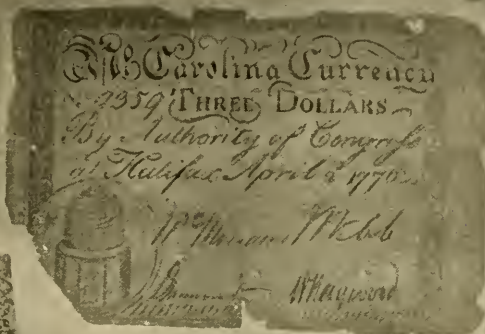 Nº Carolina Currency
Nº 9359 THREE DOLLARS
By Authority of Congress
at Halifax April 2 1776
Webb
W Haywood